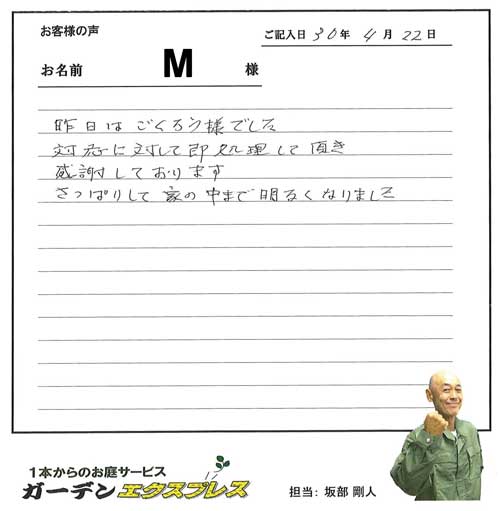 お客様の声
ご記入日 30年 4月 22日
お名前 M 様
昨日はごくろう様でした
対応に対して即処理して頂き
感謝しております
さっぱりして家の中まで明るくなりました
1本からのお庭サービス
ガーデンエクスプレス
担当: 坂部 剛人